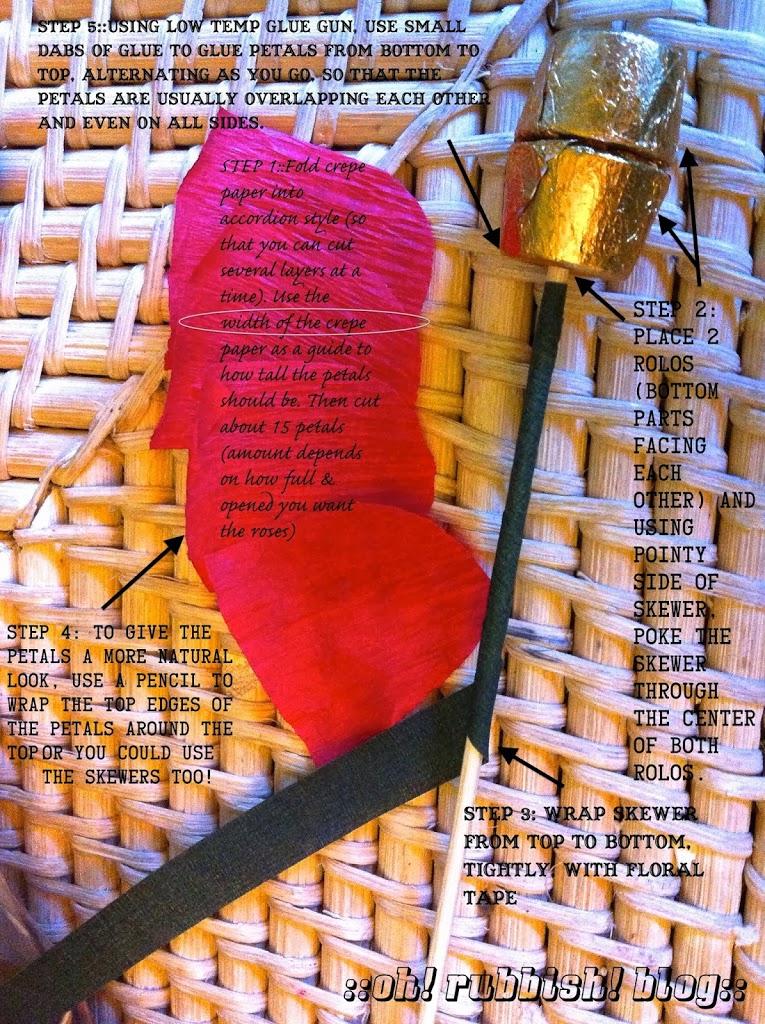 STEP 5::USING LOW TEMP GLUE GUN, USE SMALL
DABS OF GLUE TO GLUE PETALS FROM BOTTOM TO
TOP, ALTERNATING AS YOU GO. SO THAT THE
PETALS ARE USUALLY OVERLAPPING EACH OTHER
AND EVEN ON ALL SIDES.
STEP 1::Fold crepe
paper into
accordion style (so
that you can cut
several layers at a
time). Use the
width of the crepe
paper as a guide to
how tall the petals
should be. Then cut
about 15 petals
(amount depends
on how full &
opened you want
the roses)
STEP 2:
PLACE 2
ROLOS
(BOTTOM
PARTS
FACING
EACH
OTHER) AND
USING
POINTY
SIDE OF
SKEWER,
POKE THE
SKEWER
THROUGH
THE CENTER
OF BOTH
ROLOS.
STEP 4: TO GIVE THE
PETALS A MORE NATURAL
LOOK, USE A PENCIL TO
WRAP THE TOP EDGES OF
THE PETALS AROUND THE
TOP.OR YOU COULD USE
THE SKEWERS TOO!
STEP 3: WRAP SKEWER
FROM TOP TO BOTTOM,
TIGHTLY WITH FLORAL
TAPE
::oh! rubbish! blog::